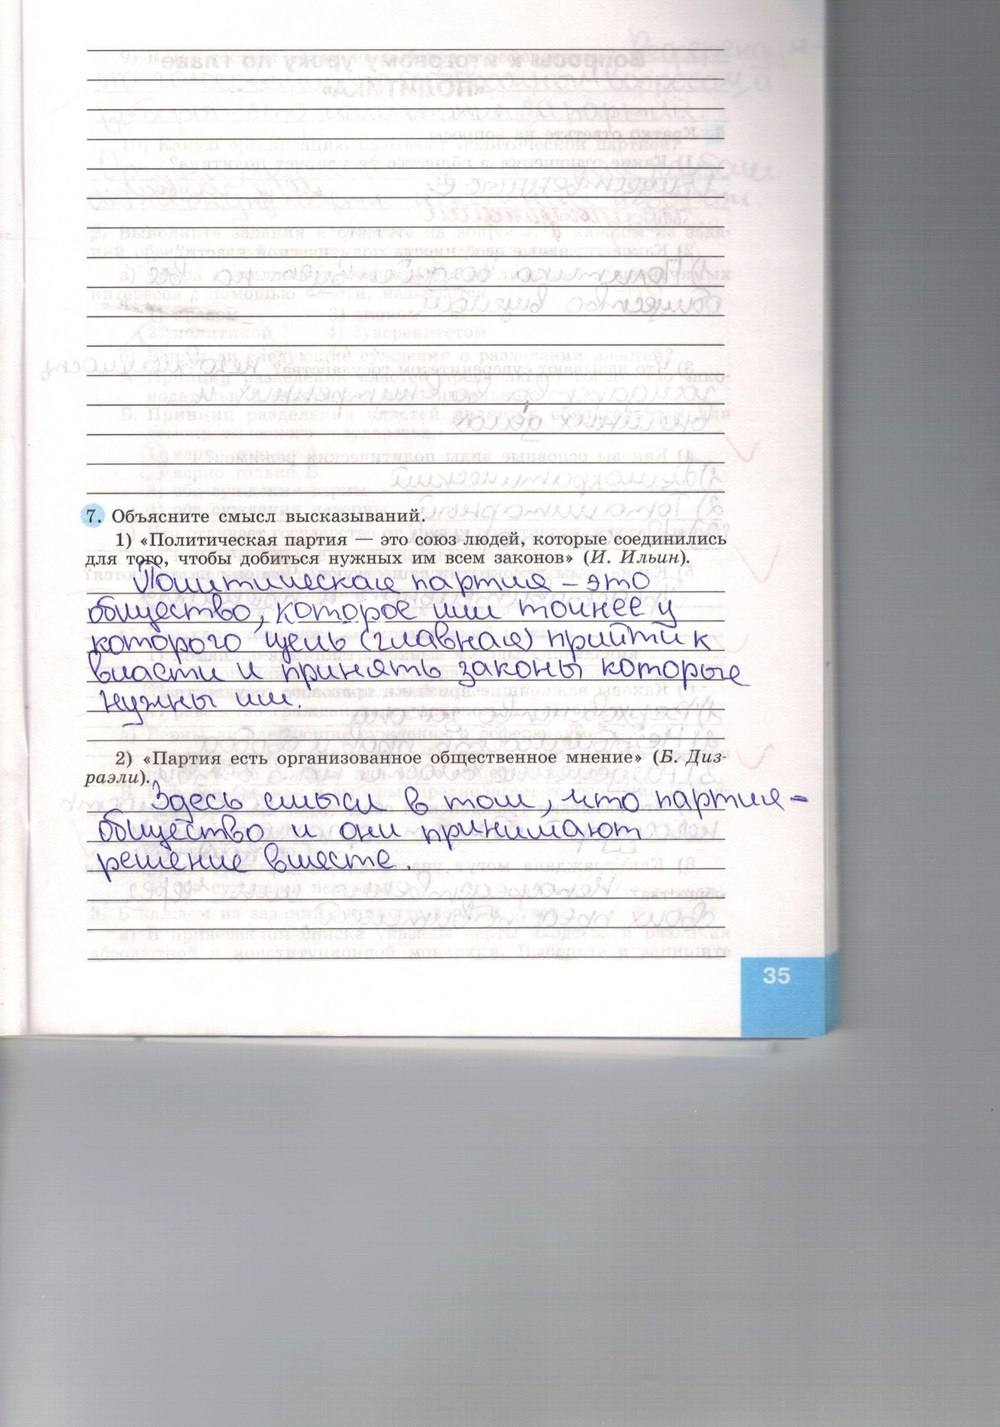 7. Объясните смысл высказываний.
1) «Политическая партия — это союз людей, которые соединились
для того, чтобы добиться нужных им всем законов» (И. Ильин).
Политическая партия - это
общество, которое или точнее у
которого цель (главная) прийти к
власти и принять законы которые
нужны им.
2) «Партия есть организованное общественное мнение» (Б. Диз-
раэли).
Здесь смысл в том, что партия -
общество и они принимают
решение вместе.
35